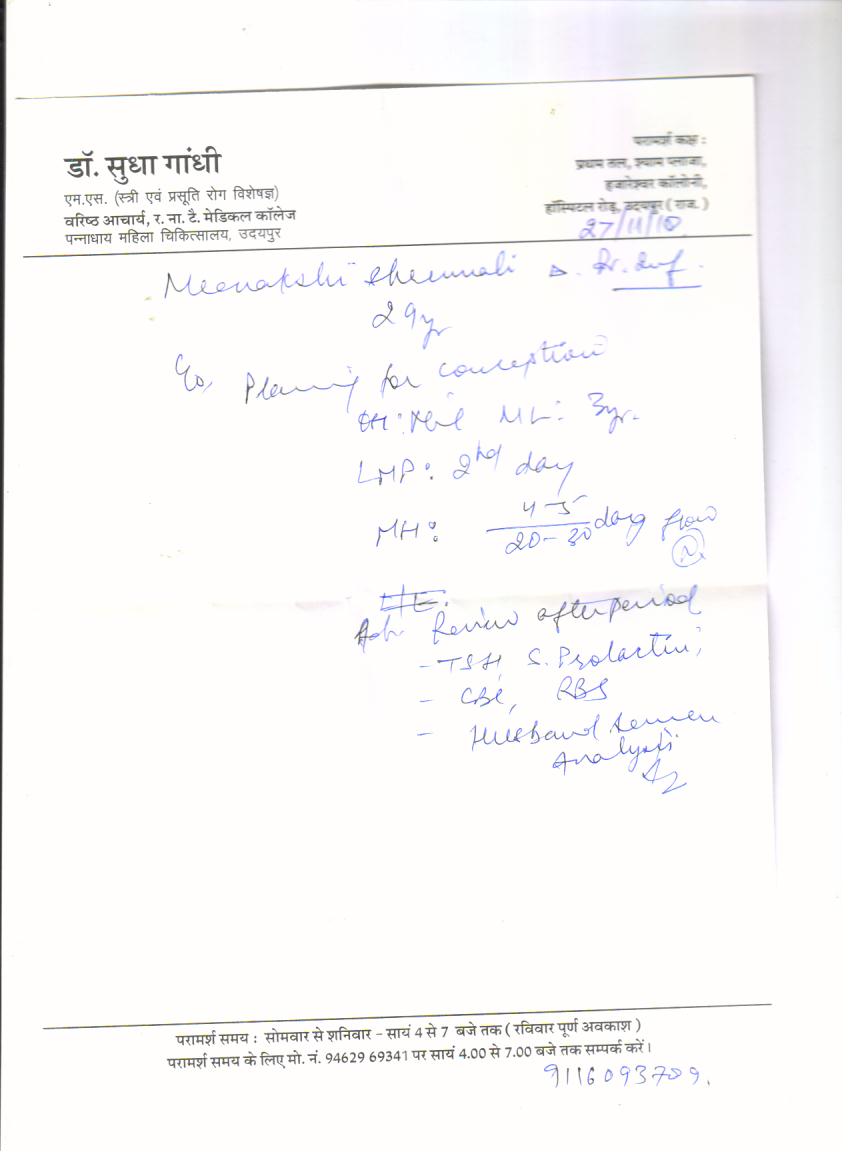 डॉ. सुधा गांधी
एम.एस. (स्त्री एवं प्रसूति रोग विशेषज्ञ)
वरिष्ठ आचार्य, र. ना. टै. मेडिकल कॉलेज
पन्नाधाय महिला चिकित्सालय, उदयपुर
परामर्श कक्ष :
प्रथम तल, श्याम प्लाजा,
हजारेश्वर कॉलोनी,
हॉस्पिटल रोड़, उदयपुर ( राज. )
27/11/18
Meenakshi
29yr
Planning for conception
OH: Nil ML: 3yr.
LMP: 2nd day
MH: 4-5
20-30 days flow
N
Adv. Review after period
- TSH, S. Prolactin;
- CBC, RBS
- Husband Semen
Analysis
परामर्श समय : सोमवार से शनिवार - सायं 4 से 7 बजे तक ( रविवार पूर्ण अवकाश )
परामर्श समय के लिए मो. नं. 94629 69341 पर सायं 4.00 से 7.00 बजे तक सम्पर्क करें।
9116093709.